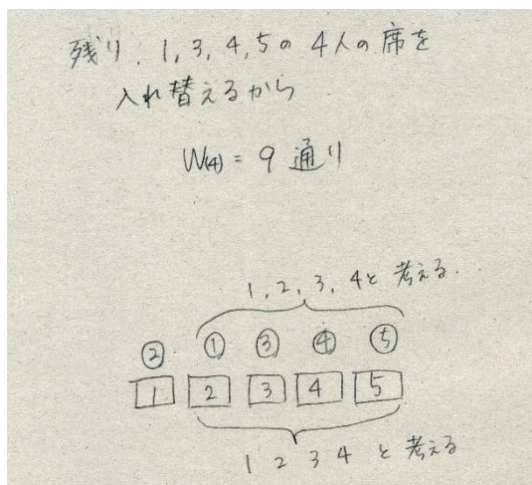 残り、1,3,4,5の4人の席を
入れ替えるから
W(4) = 9 通り
1, 2, 3, 4と考える.
② ① ③ ④ ⑤
1 2 3 4 5
1 2 3 4 と考える